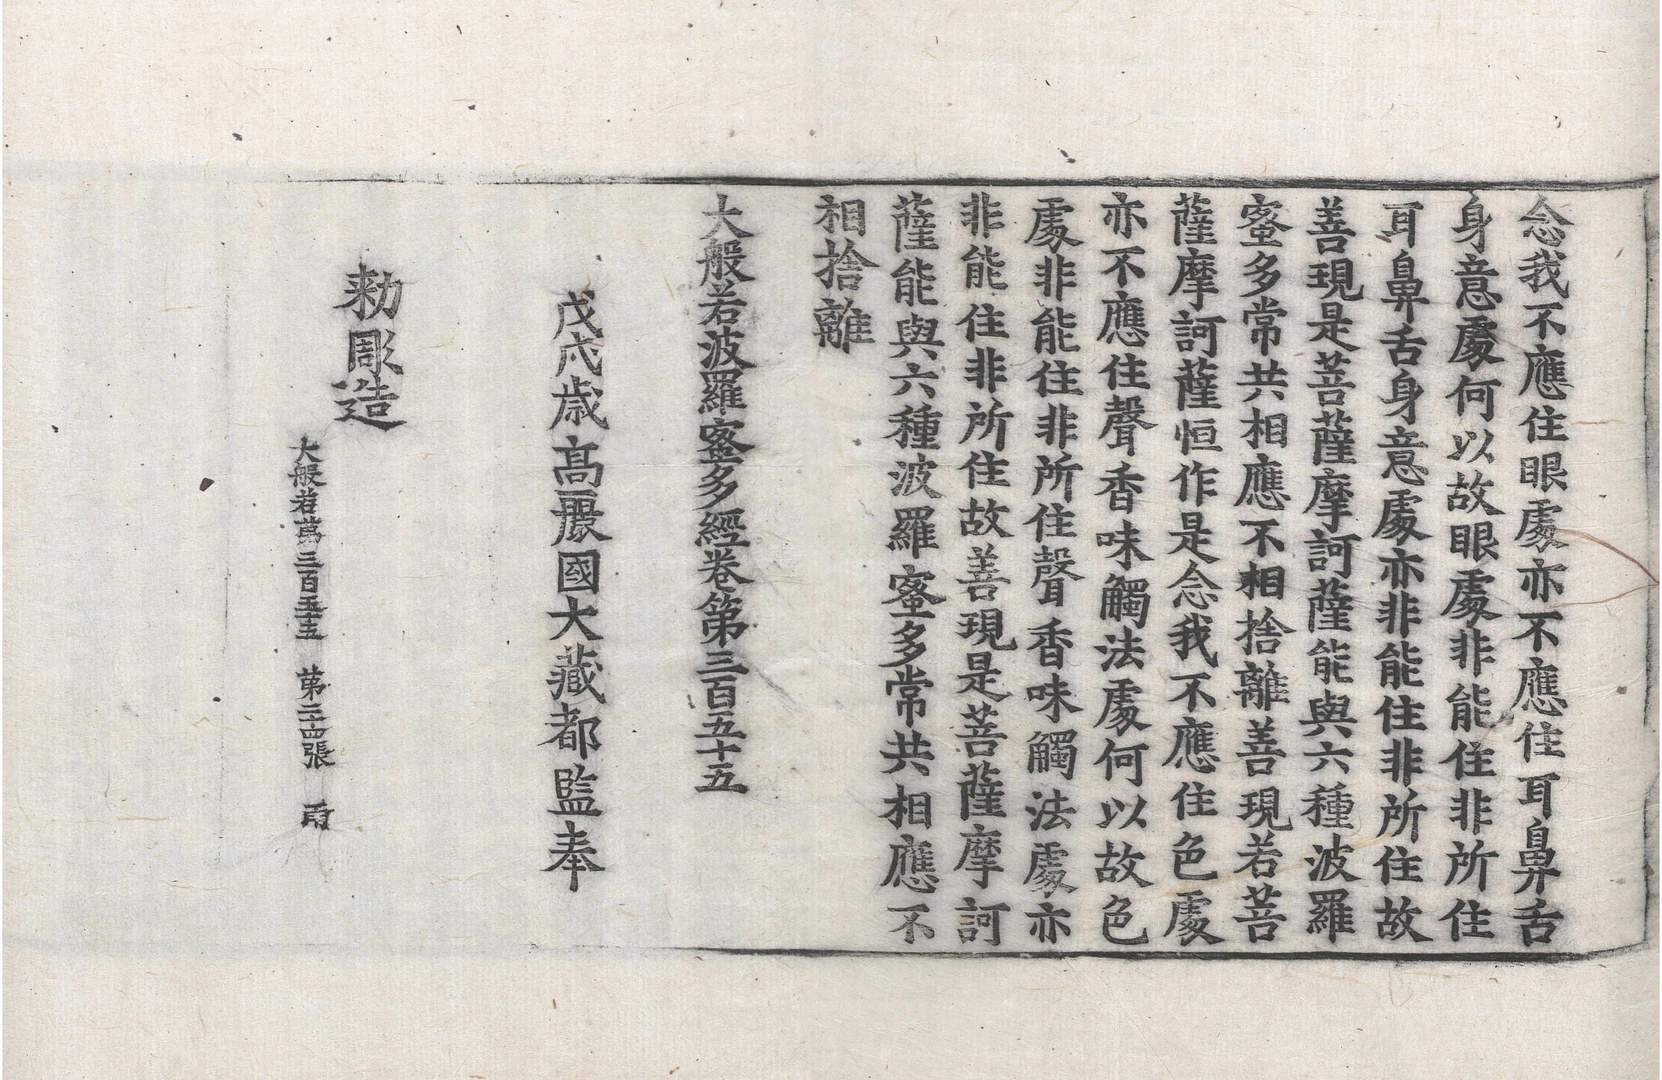 念我不應住眼處亦不應住耳鼻舌
身意處何以故眼處非能住非所住
耳鼻舌身意處亦非能住非所住故
善現是菩薩摩訶薩能與六種波羅
蜜多常共相應不相捨離善現若菩
薩摩訶薩恒作是念我不應住色處
亦不應住聲香味觸法處何以故色
處非能住非所住聲香味觸法處亦
非能住非所住故善現是菩薩摩訶
薩能與六種波羅蜜多常共相應不
相捨離
大般若波羅蜜多經卷第三百五十五
戊戌歲高麗國大藏都監奉
勅彫造
大般若第三百五十五 第二十四張 雨